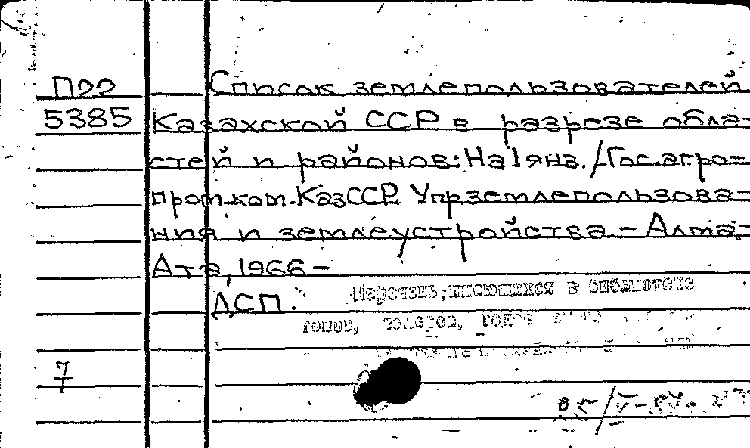 П22 Список землепользователей
5385 Казахской ССР в разрезе обла-
стей и районов: На 1 янв. /Гос.агро-
пром.ком. КазССР. Упр.землепользова-
ния и землеустройства - Алма-
Ата, 1966 -
ДСП.
имеющихся в библиотеке
томов,
7